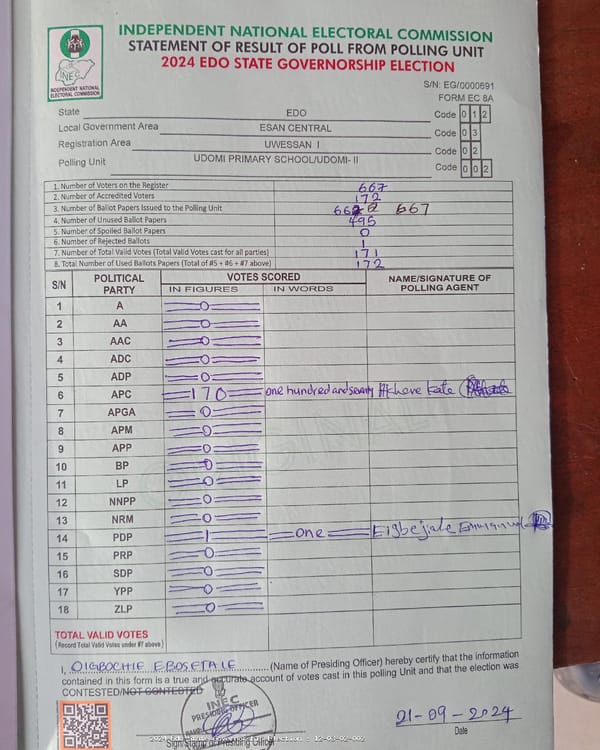 INDEPENDENT NATIONAL ELECTORAL COMMISSION
STATEMENT OF RESULT OF POLL FROM POLLING UNIT
2024 EDO STATE GOVERNORSHIP ELECTION
INEC
INDEPENDENT NATIONAL
ELECTORAL COMMISSION
S/N: EG/0000691
FORM EC 8A
State EDO Code 0 1 2
Local Government Area ESAN CENTRAL Code 0 3
Registration Area UWESSAN I Code 0 2
Polling Unit UDOMI PRIMARY SCHOOL/UDOMI- II Code 0 0 2
1. Number of Voters on the Register 667
2. Number of Accredited Voters 172
3. Number of Ballot Papers Issued to the Polling Unit 667
4. Number of Unused Ballot Papers 495
5. Number of Spoiled Ballot Papers 0
6. Number of Rejected Ballots 1
7. Number of Total Valid Votes (Total Valid Votes cast for all parties) 171
8. Total Number of Used Ballots Papers (Total of #5 + #6 + #7 above) 172
S/N POLITICAL PARTY VOTES SCORED NAME/SIGNATURE OF POLLING AGENT
IN FIGURES IN WORDS
1 A 0
2 AA 0
3 AAC 0
4 ADC 0
5 ADP 0
6 APC 170 one hundred and seventy
7 APGA 0
8 APM 0
9 APP 0
10 BP 0
11 LP 0
12 NNPP 0
13 NRM 0
14 PDP 1 one
15 PRP 0
16 SDP 0
17 YPP 0
18 ZLP 0
TOTAL VALID VOTES
(Record Total Valid Votes under #7 above)
I, OIGBOCHIE EBOSETALE (Name of Presiding Officer) hereby certify that the information
contained in this form is a true and accurate account of votes cast in this polling Unit and that the election was
CONTESTED/NOT CONTESTED
INEC
PRESIDING OFFICER
21-09-2024
Sign/Stamp of Presiding Officer
Date